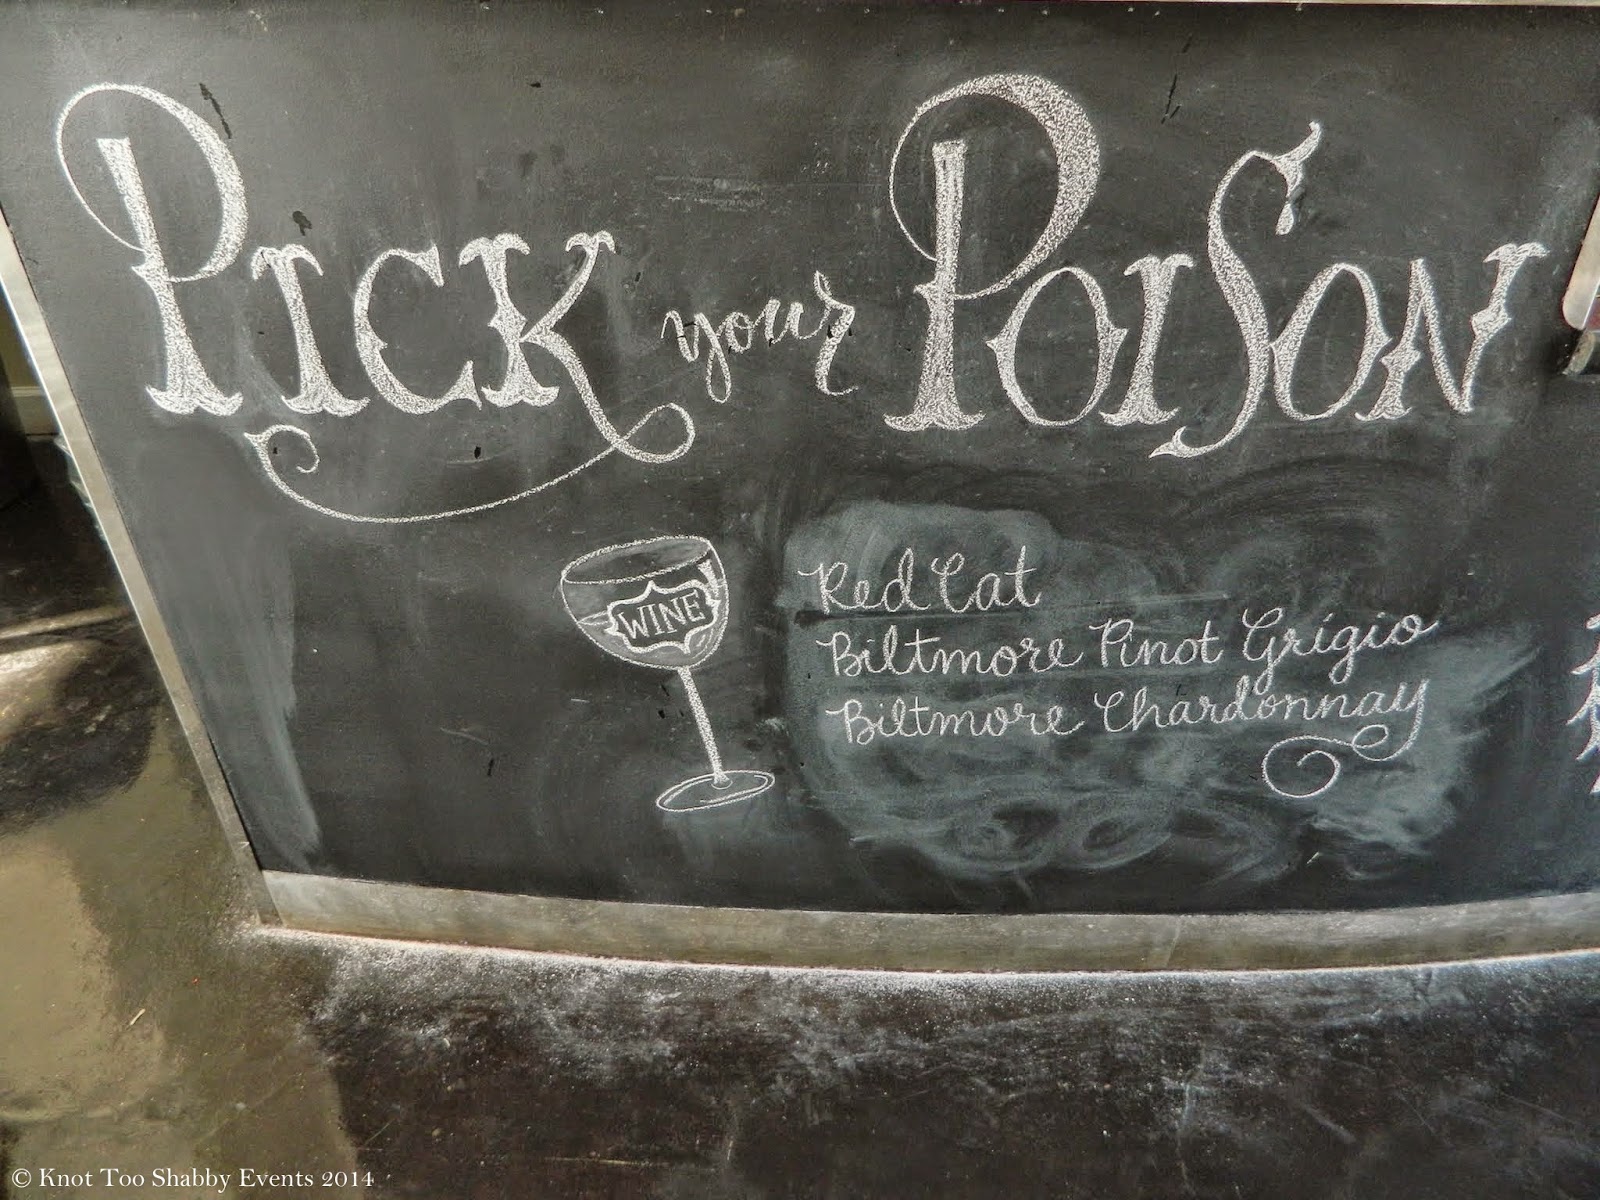 Pick your Poison
WINE
Red Cat
Biltmore Pinot Grigio
Biltmore Chardonnay
© Knot Too Shabby Events 2014